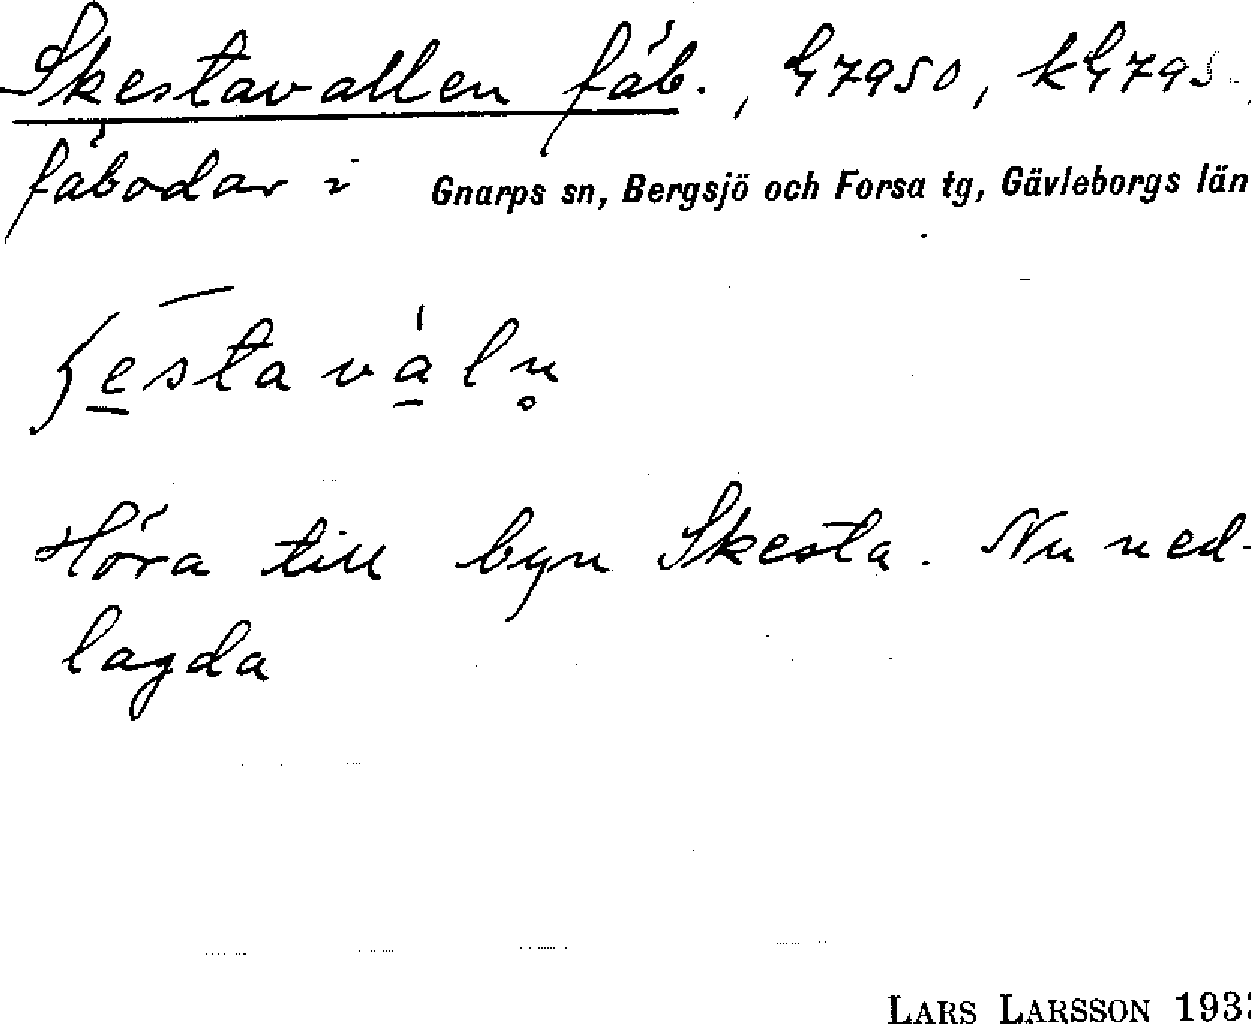 Skestavallen fäb., G7950, kG795
fäbodar i Gnarps sn, Bergsjö och Forsa tg, Gävleborgs län
ʃestaváln̥
Höra till byn Skesta. Nu ned-
lagda
LARS LARSSON 193